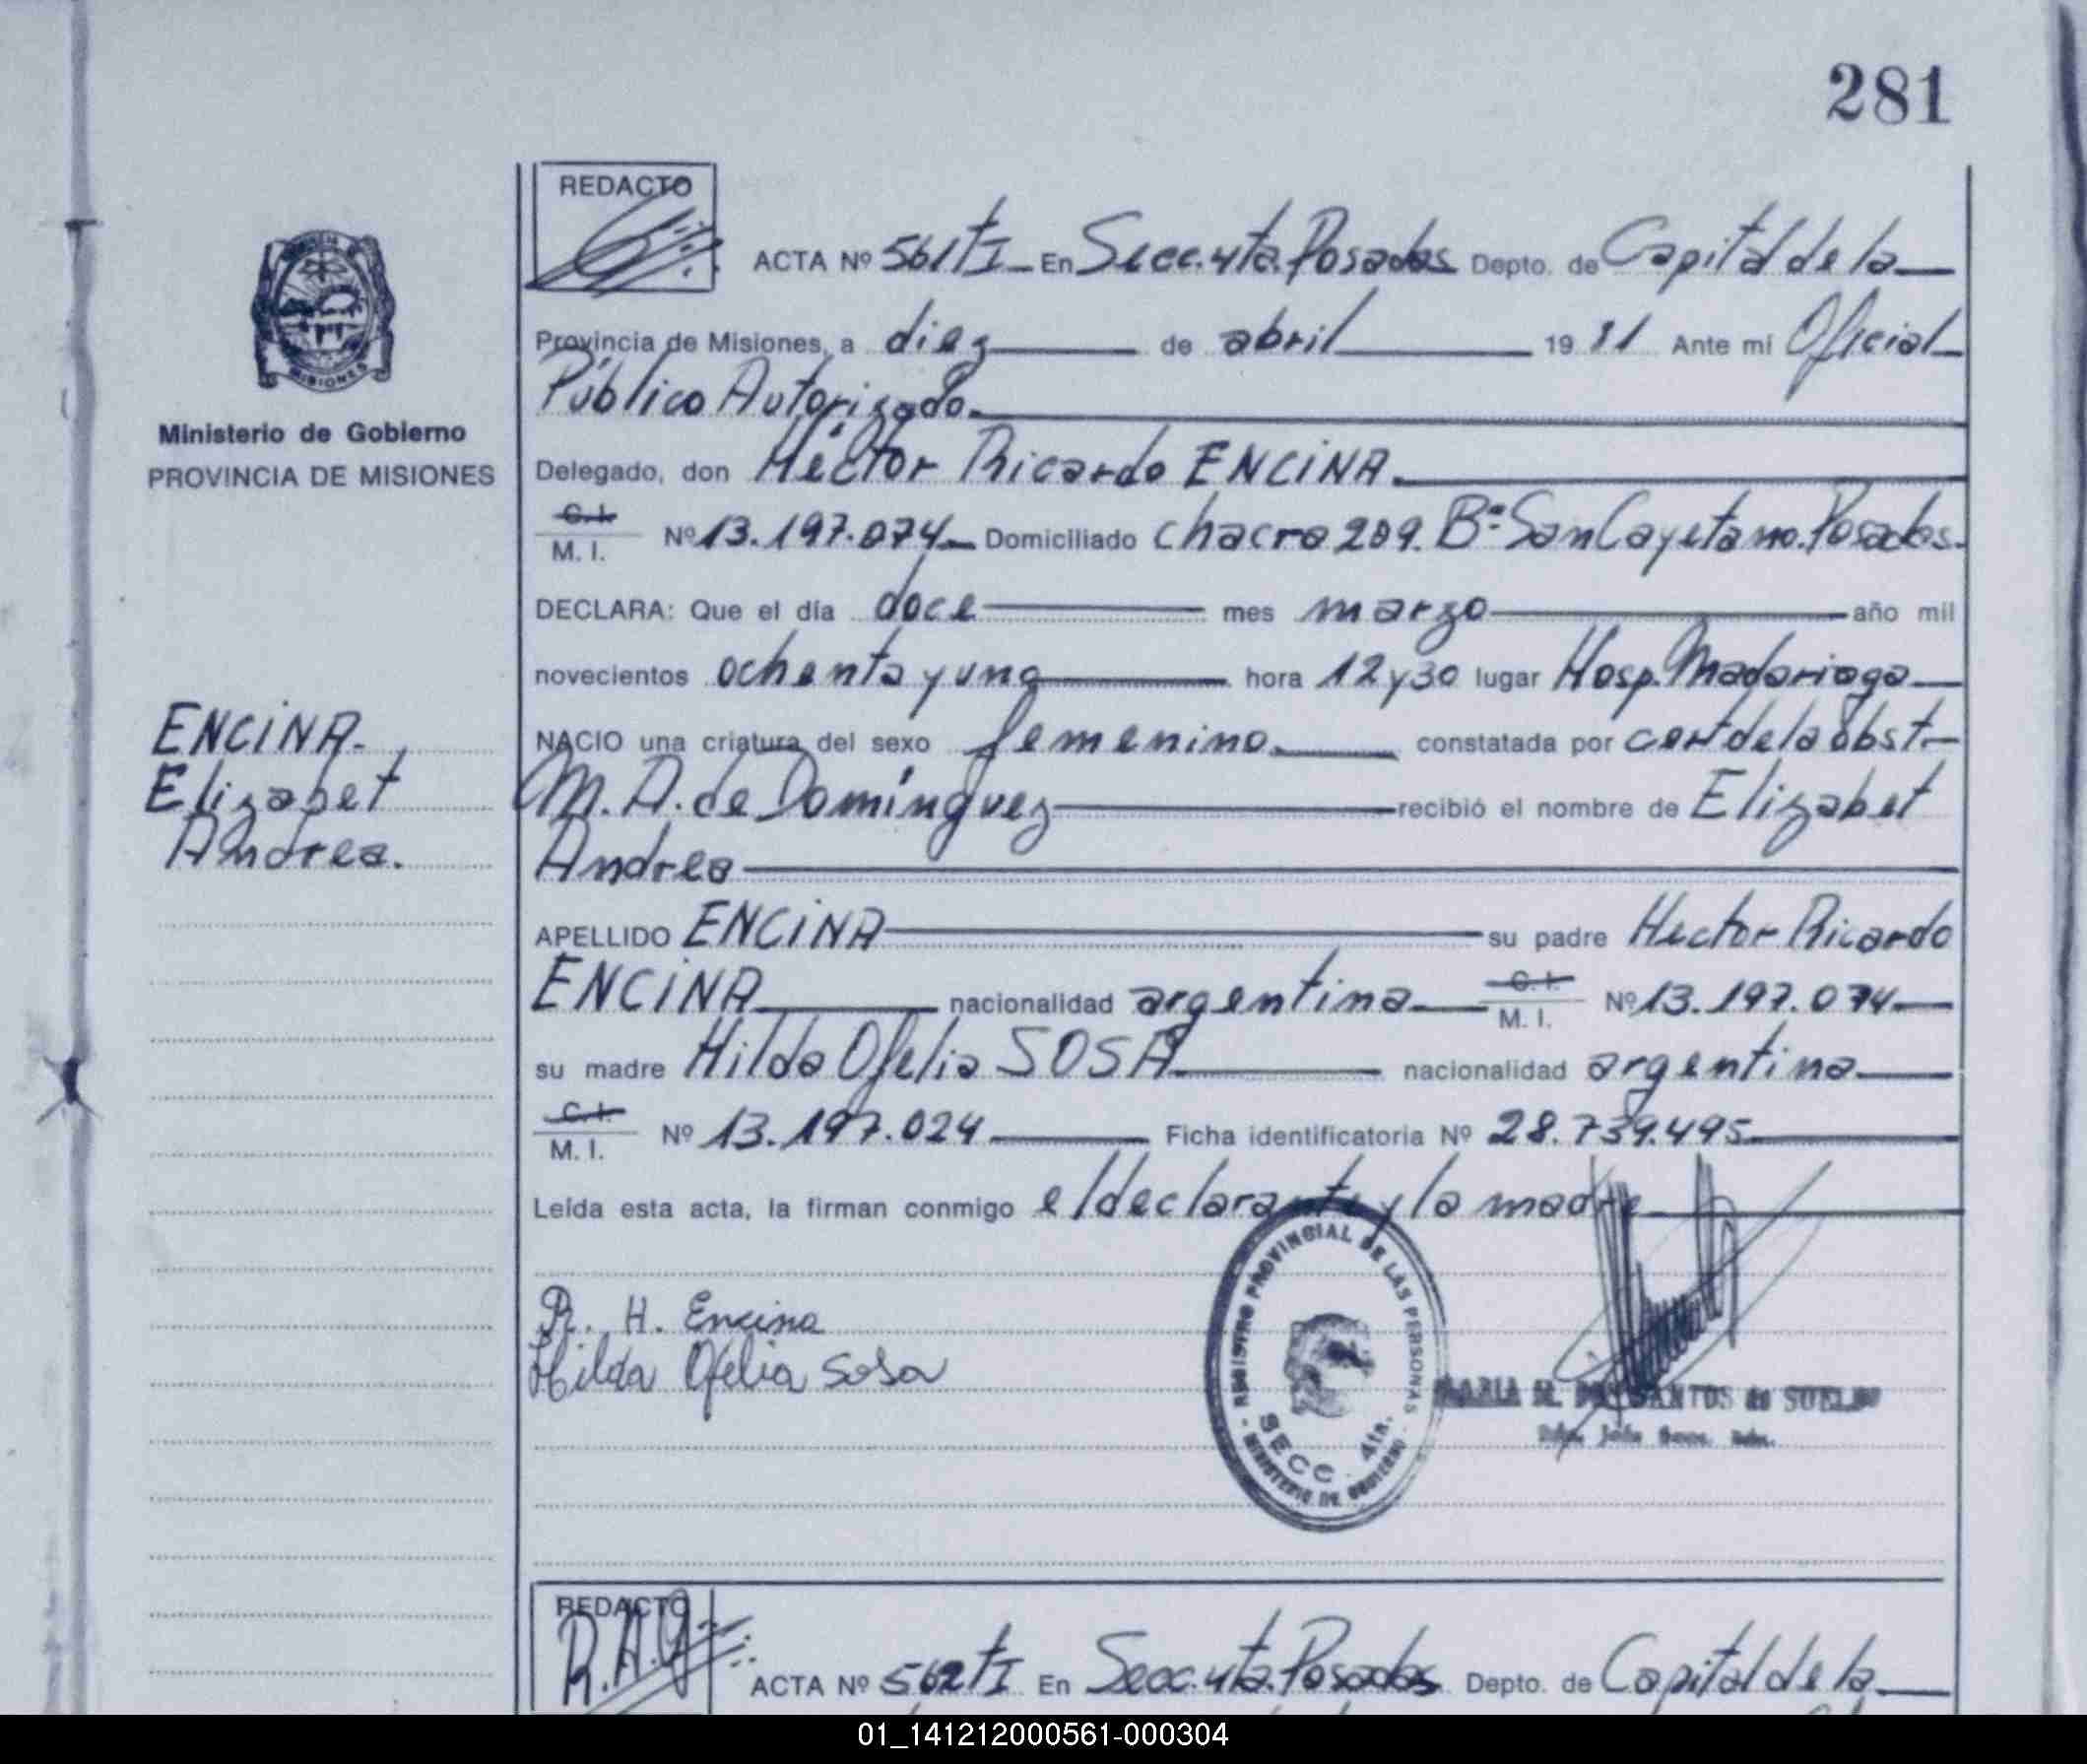 281
REDACTO
ACTA Nº 561 tI En Secc. 4ta. Posadas Depto. de Capital de la
Provincia de Misiones, a diez de abril 1981 Ante mí Oficial
Público Autorizado.
Ministerio de Gobierno
PROVINCIA DE MISIONES
Delegado, don Héctor Ricardo ENCINA.
C. I.
M. I. Nº 13.197.074 Domiciliado chacra 209. Bº San Cayetano. Posadas.
DECLARA: Que el día doce mes marzo año mil
novecientos ochenta y uno hora 12 y 30 lugar Hosp. Madariaga
ENCINA.
Elizabet
Andrea.
NACIO una criatura del sexo femenino. constatada por cert de la obst.
M. A. de Domínguez recibió el nombre de Elizabet
Andrea
APELLIDO ENCINA su padre Hector Ricardo
ENCINA nacionalidad argentina C. I. M. I. Nº 13.197.074
su madre Hilda Ofelia SOSA nacionalidad argentina
C. I.
M. I. Nº 13.197.024 Ficha identificatoria Nº 28.739.495
Leída esta acta, la firman conmigo el declarante y la madre
R. H. Encina
Hilda Ofelia Sosa
REGISTRO PROVINCIAL DE LAS PERSONAS
SECC. 4ta.
MINISTERIO DE GOBIERNO
MARIA SANTOS de
REDACTO
R.A.G
ACTA Nº 562 tI En Secc. 4ta. Posadas Depto. de Capital de la
01_141212000561-000304